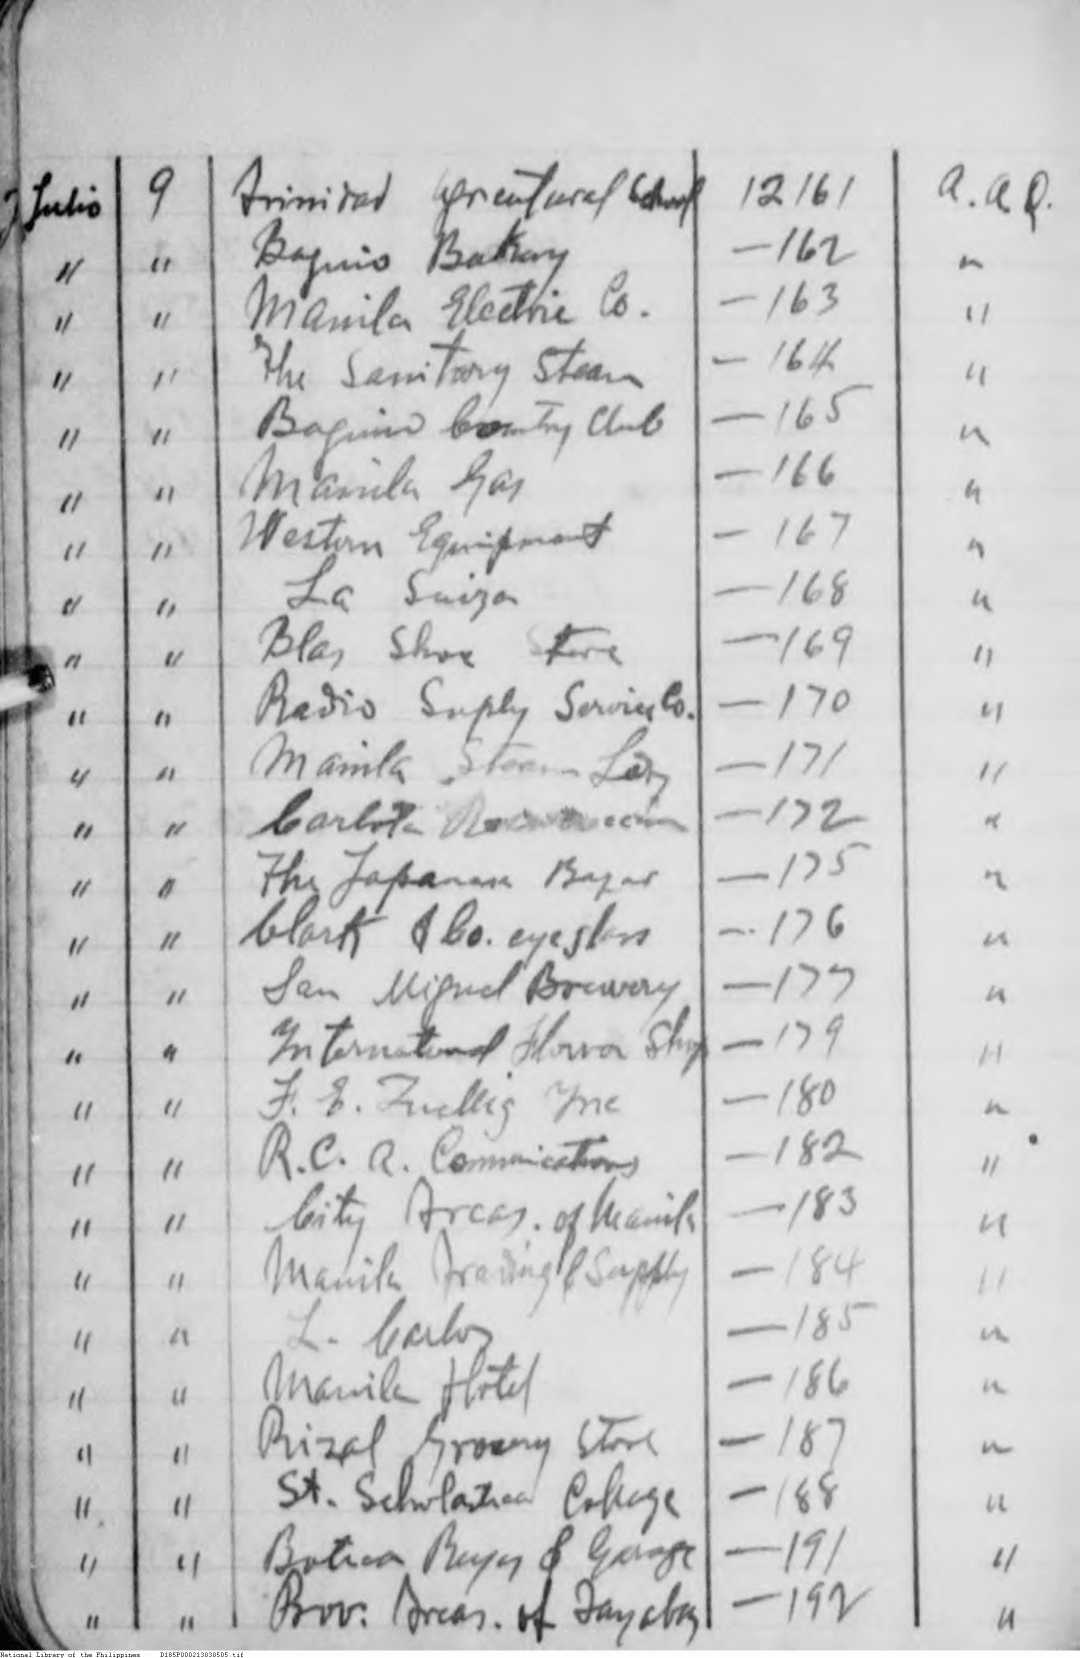 Julio 9 Trinidad Agricultural School 12161 A. A. Q.
" " Baguio Bakery —162 "
" " Manila Electric Co. —163 "
" " The Sanitary Steam —164 "
" " Baguio Country Club —165 "
" " Manila Gas —166 "
" " Western Equipment —167 "
" " La Suiza —168 "
" " Blas Shoe Store —169 "
" " Radio Suply Service Co. —170 "
" " Manila Steam Ldry —171 "
" " Carlota —172 "
" " The Japanese Bazar —175 "
" " Clark & Co. eyeglass —176 "
" " San Miguel Brewery —177 "
" " International Flower Shop —179 "
" " F. E. Zuellig Inc —180 "
" " R.C.A. Communications —182 "
" " City Treas. of Manila —183 "
" " Manila Trading & Supply —184 "
" " L. Carlos —185 "
" " Manila Hotel —186 "
" " Rizal Grocery Store —187 "
" " St. Scholastica College —188 "
" " Botica Reyes & Garage —191 "
" " Prov. Treas. of Tayabas —192 "
National Library of the Philippines D185P000213038505.tif